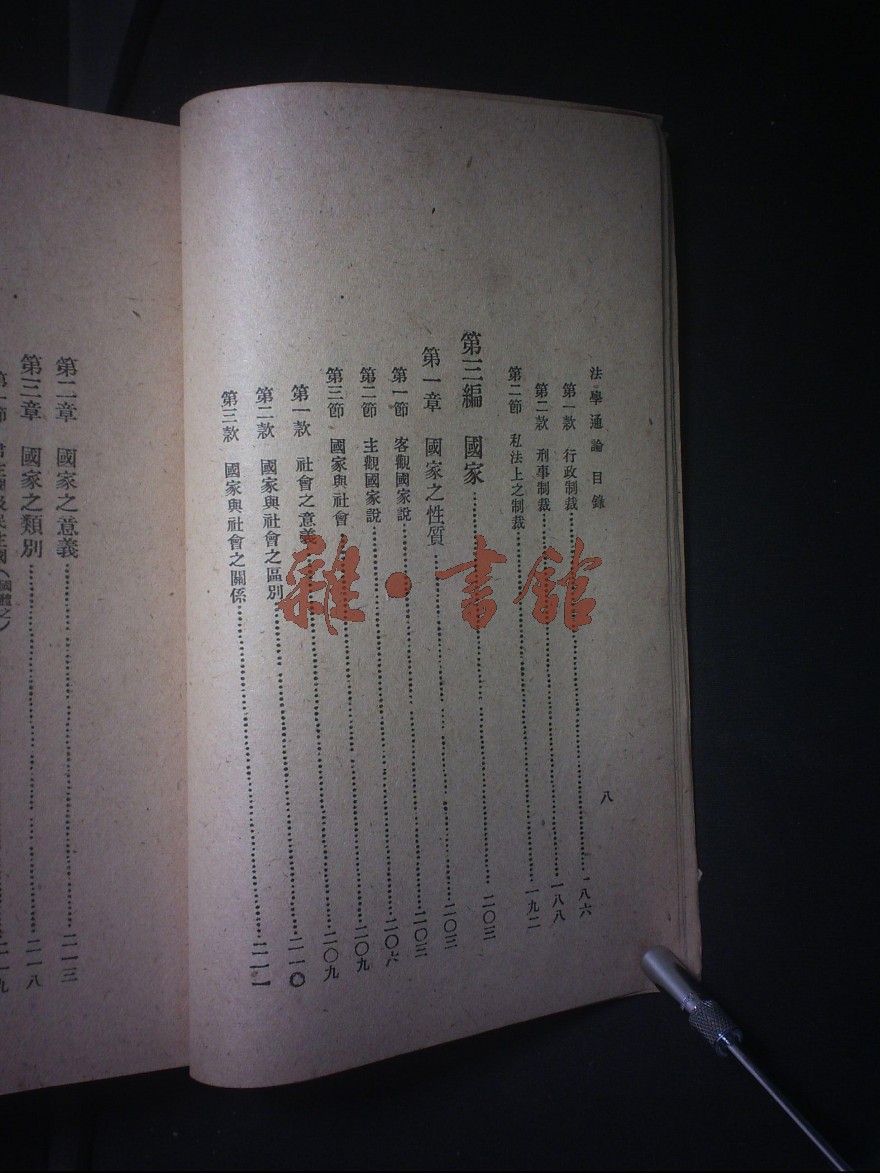 法學通論 目錄 八
第一款 行政制裁……一八六
第二款 刑事制裁……一八八
第二節 私法上之制裁……一九二
第三編 國家……二〇三
第一章 國家之性質……二〇三
第一節 客觀國家說……二〇三
第二節 主觀國家說……二〇六
第三節 國家與社會……二〇九
第一款 社會之意義……二〇九
第二款 國家與社會之區別……二一〇
第三款 國家與社會之關係……二一一
第二章 國家之意義……二一三
第三章 國家之類別……二一八
第一節 君主國及民主國(國體之)……二一九
雜·書館